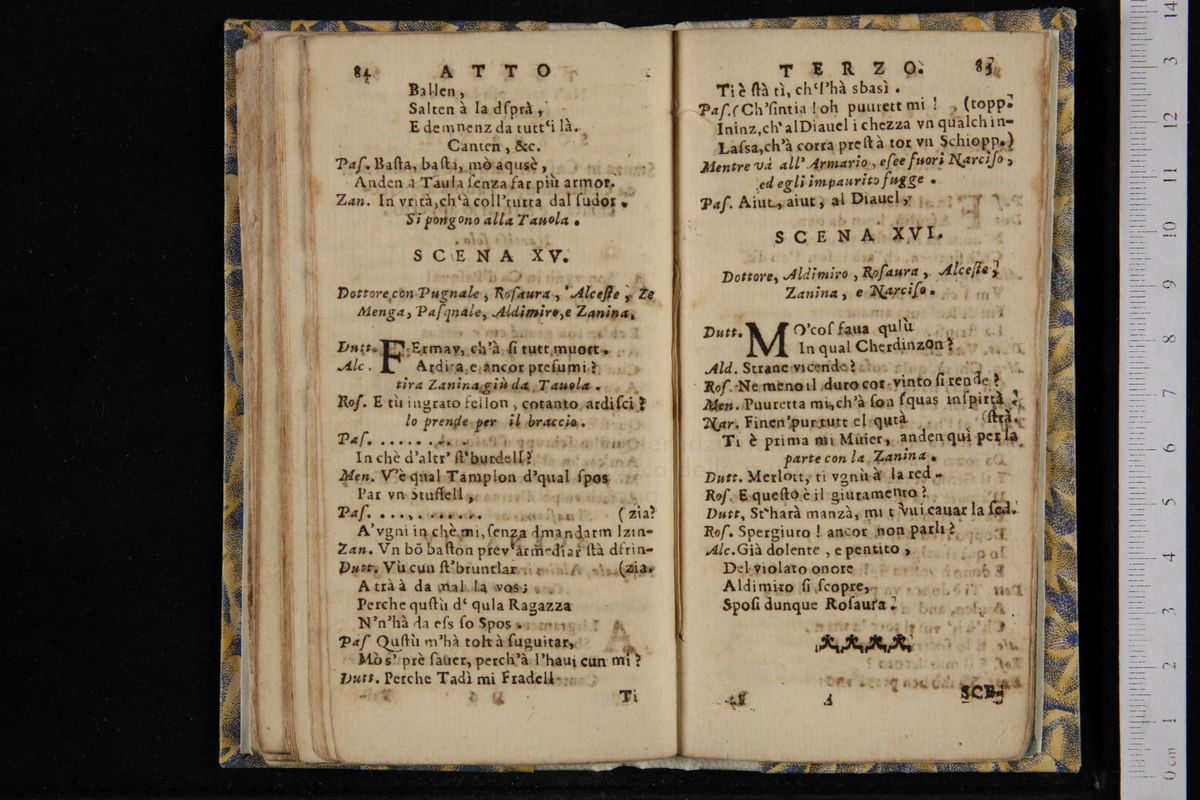 84 ATTO
Ballen,
Salten à la dſprà,
E demnenz da tutt‘i là.
Canten, &c.
Paſ. Baſta, baſta, mò aqusè,
Anden a Taula ſenza far più armor.
Zan. In vrità, ch'à coll'turta dal ſudor.
Si pongono alla Tauola.
SCENA XV.
Dottore con Pugnale, Roſaura, Alceſte, Ze
Menga, Paſqnale, Aldimiro, e Zanina.
Dutt. FErmav, ch'à ſi tutt muort.
Alc. Ardita, e ancor preſumi?
tira Zanina giù da Tauola.
Roſ. E tù ingrato fellon, cotanto ardiſci?
lo prende per il braccio.
Paſ. .........
In chè d'altr' ſt'burdell?
Men. V'è qual Tamplon d'qual ſpos
Par vn Stuffell,
Paſ. ..........
(zia?
A'vgni in chè mi, ſenza dmandarm lzin-
Zan. Vn bõ baſton prev'armediar ſtà dſrin-
Dutt. Vù cun ſt'bruntlar (zia.
A trà à da mal la vos;
Perche quſtù d‘ qula Ragazza
N'n'hà da eſs ſo Spos.
Paſ Quſtù m'hà tolt à ſuguitar,
Mò s' prè ſauer, perch'à l'haui cun mi?
Dutt. Perche Tadì mi Fradell
Ti
TERZO. 85
Ti è ſtà tì, ch‘l'hà sbasì.
Paſ. (Ch'ſintia! oh puurett mi! (topp.
Ininz, ch' al Diauel i chezza vn qualch in-
Laſsa, ch'à corra preſt à tor vn Schiopp.)
Mentre và all' Armario, eſee fuori Narciſo,
ed egli impaurito fugge.
Paſ. Aiut, aiut, al Diauel,
SCENA XVI.
Dottore, Aldimiro, Roſaura, Alceſte,
Zanina, e Narciſo.
Dutt. MO'coſ faua qulù
In qual Cherdinzon?
Ald. Strane vicende?
Roſ. Ne meno il duro cor vinto ſi rende?
Men. Puuretta mi, ch'à ſon ſquas inſpirtà?
Nar. Finen'pur tutt el qutà (ſtrà.
Ti è prima mi Muier, anden quì per la
parte con la Zanina.
Dutt. Merlott, ti vgnù à la red-
Roſ. E queſto è il giuramento?
Dutt, St‘harà manzà, mi t Vui cauar la ſed.
Roſ. Spergiuro! ancor non parli?
Alc. Già dolente, e pentito,
Del violato onore
Aldimiro ſi ſcopre,
Spoſi dunque Roſaura.
SCE-